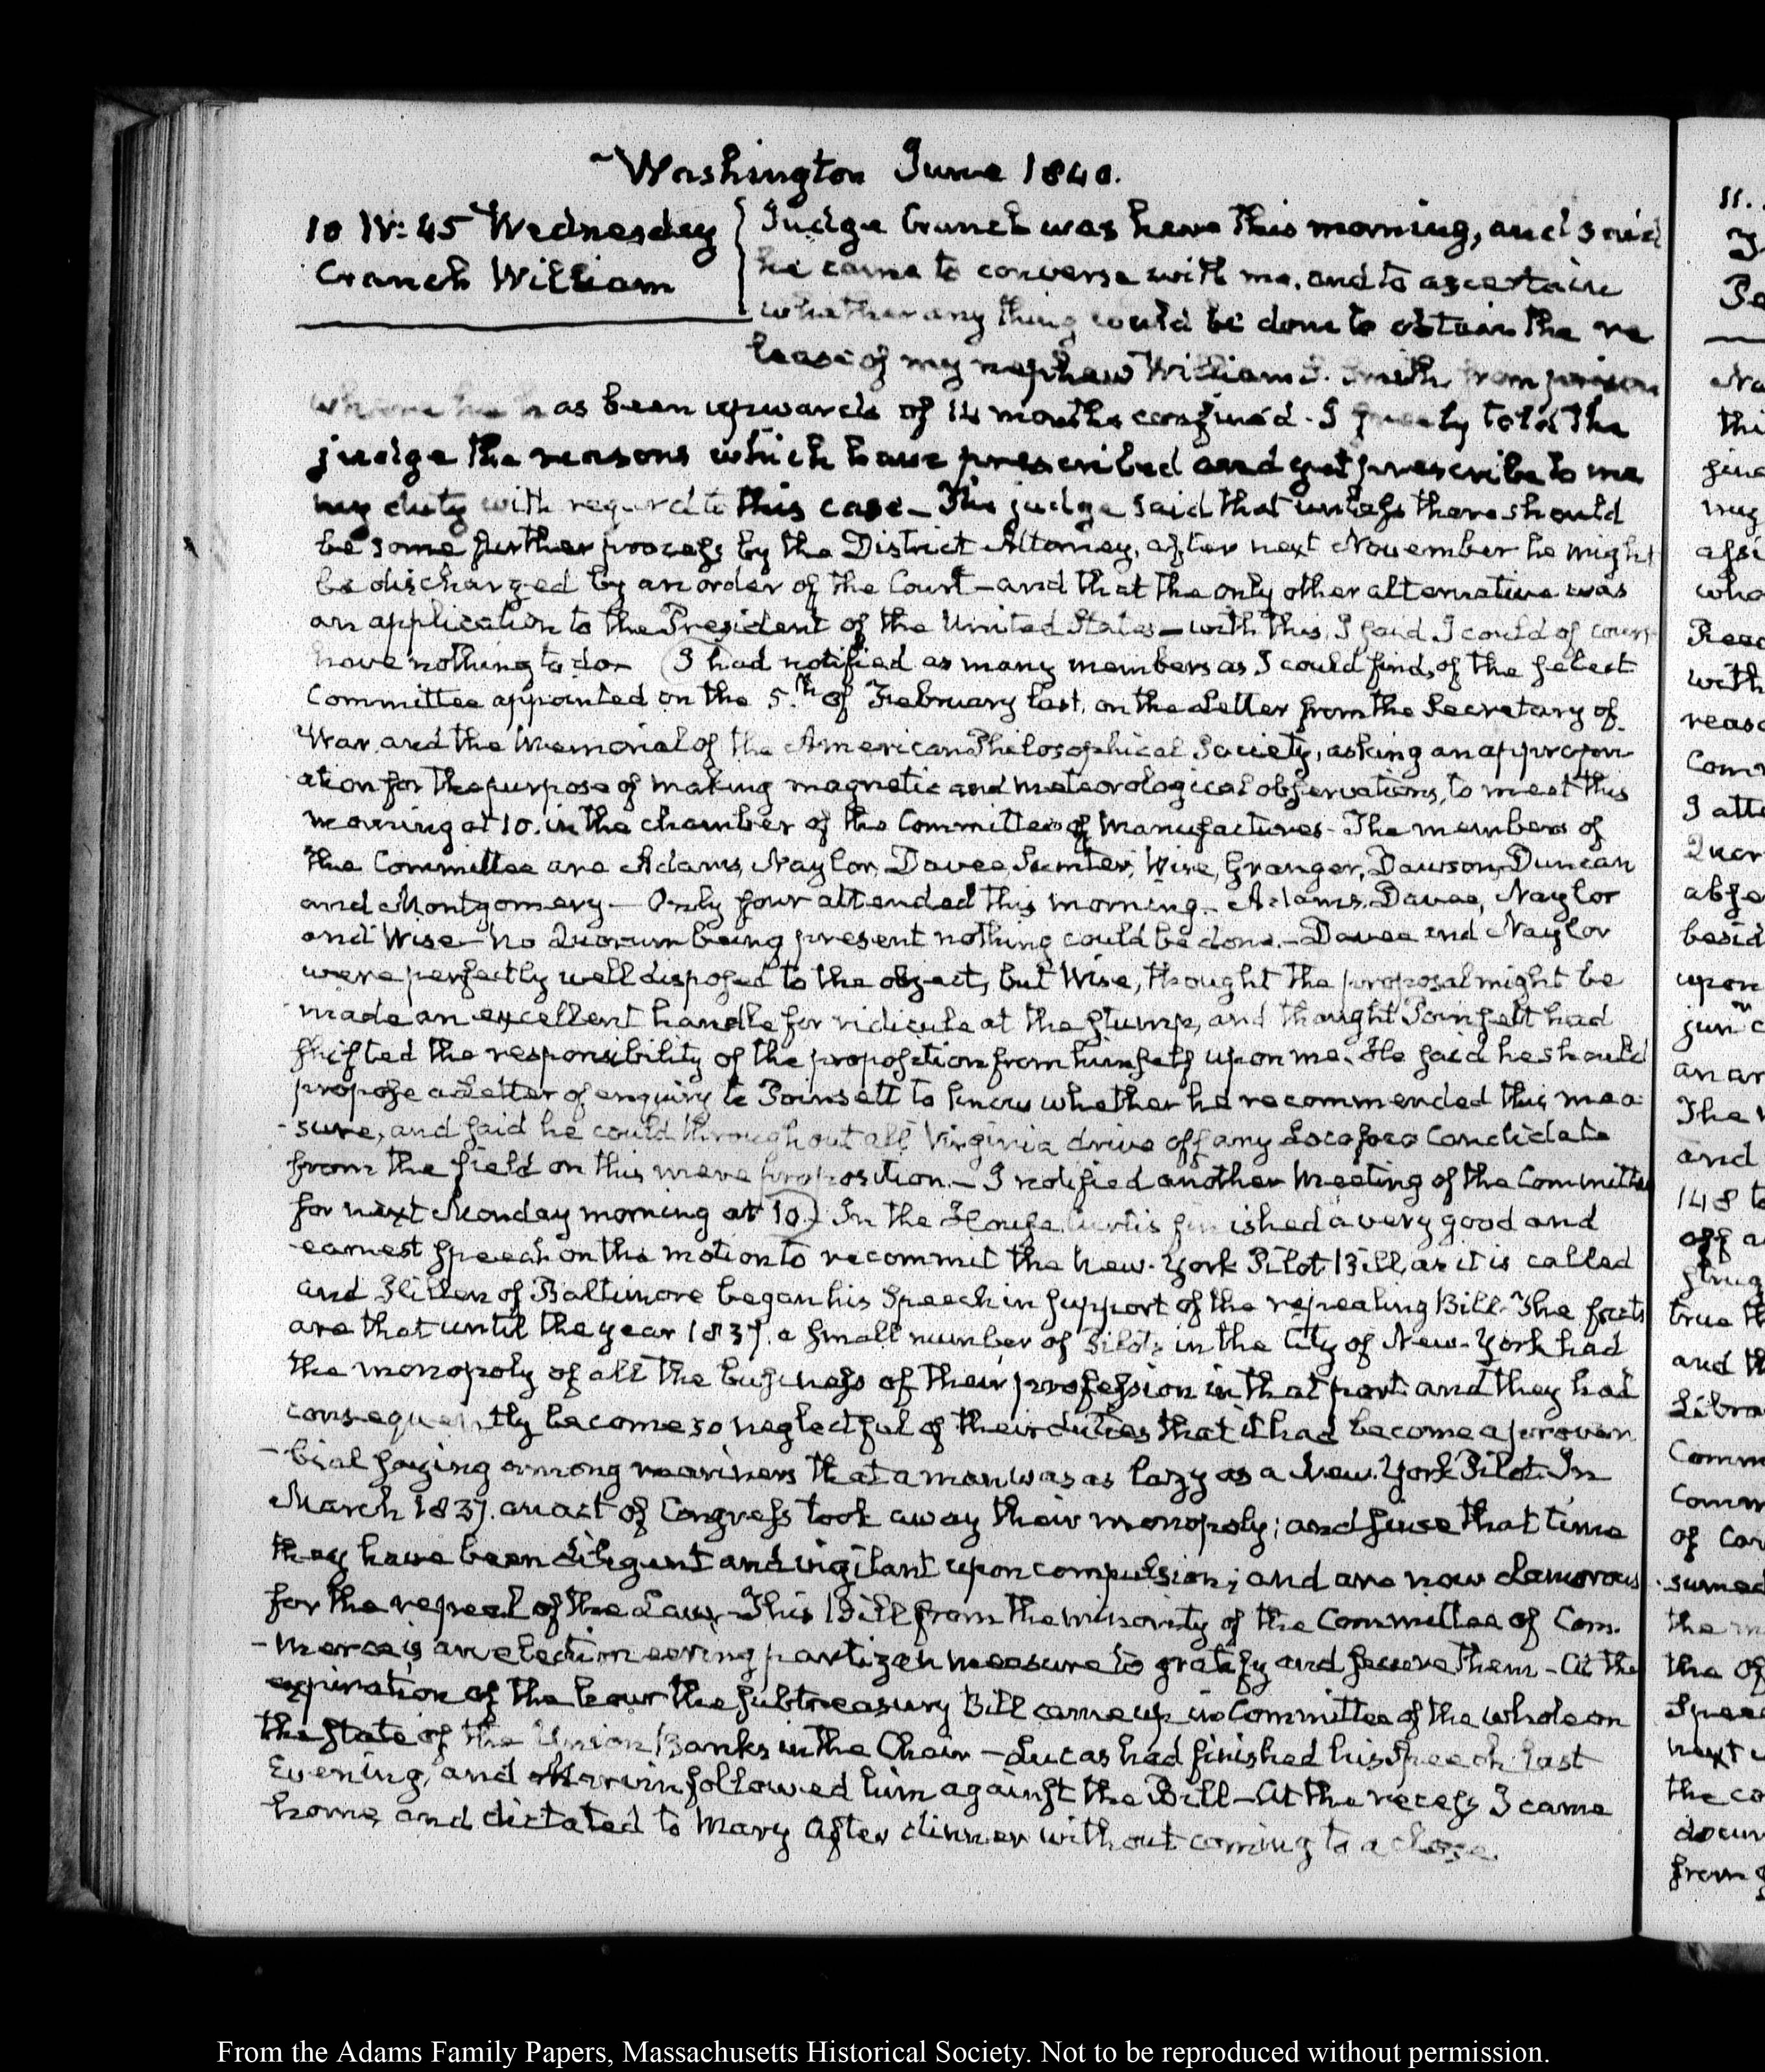 Washington June 1840.
10 IV:45 Wednesday
Cranch William
Judge Cranch was here this morning, and said
he came to converse with me, and to ascertain
whether any thing could be done to obtain the re
lease of my nephew William S. Smith from prison
where he has been upwards of 14 months confined. I freely told the
judge the reasons which have prescribed and yet prescribe to me
my duty with regard to this case — The judge said that unless there should
be some further process by the District Attorney, after next November he might
be discharged by an order of the Court — and that the only other alternative was
an application to the President of the United States — with this, I said I could of course
have nothing to do — (I had notified as many members as I could find, of the select
Committee appointed on the 5.th of February last, on the Letter from the Secretary of
War and the Memorial of the American Philosophical Society, asking an appropri
ation for the purpose of making magnetic and meteorological observations, to meet this
morning at 10. in the chamber of the Committee of Manufactures — The members of
the Committee are Adams, Naylor, Davee, Sumter, Wise, Granger, Dawson, Duncan
and Montgomery — Only four attended this morning — Adams, Davee, Naylor
and Wise — No Quorum being present nothing could be done. — Davee and Naylor
were perfectly well disposed to the object, but Wise, thought the proposal might be
made an excellent handle for ridicule at the stump, and thought Poinsett had
shifted the responsibility of the proposition from himself upon me. He said he should
propose a Letter of enquiry to Poinsett to know whether he recommended this mea
-sure, and said he could throughout all Virginia drive off any Locofoco Candidate
from the field on this mere proposition. — I notified another Meeting of the Committee
for next Monday morning at 10.) In the House Curtis finished a very good and
earnest speech on the motion to recommit the New-York Pilot Bill, as it is called
and Hillen of Baltimore began his Speech in support of the repealing Bill. The facts
are that until the year 1837. a small number of Pilots in the City of New-York had
the monopoly of all the business of their profession in that port and they had
consequently become so neglectful of their duties that it had become a prover
-bial saying among mariners that a man was as lazy as a New-York Pilot. In
March 1837. an act of Congress took away their monopoly; and since that time
they have been diligent and vigilant upon compulsion; and are now clamorous
for the repeal of the Law — This Bill from the minority of the Committee of Com.
-merce is an electioneering partizan measure to gratify and secure them — At the
expiration of the hour the subtreasury Bill came up in Committee of the whole on
the State of the Union Banks in the Chair — Lucas had finished his Speech last
Evening, and Marvin followed him against the Bill — At the recess I came
home, and dictated to Mary after dinner without coming to a close.
11.
Pe
thi
give
assi
who
Reso
with
reaso
Com
I atte
Quor
abse
besid
upon
an ar
The
and
148 to
off a
strug
true th
and th
Libra
Comm
Comm
of Con
sumed
the m
the of
Speec
next
the co
docum
from
From the Adams Family Papers, Massachusetts Historical Society. Not to be reproduced without permission.